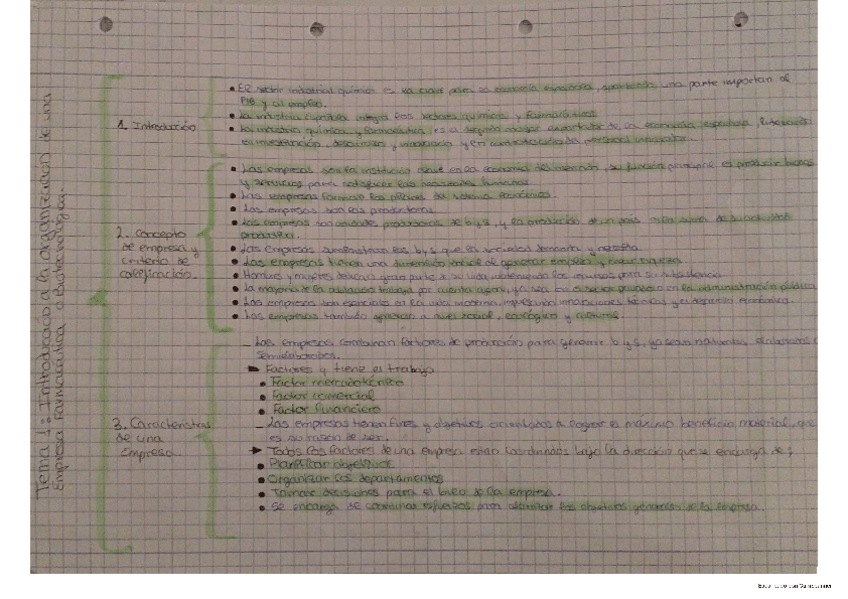 Tema 1: Introducción a la organización de una
Empresa Farmacéutica o Biotecnológica.
1. Introducción
• El sector industrial químico es la clave para la economía española, aportando una parte importan al
PIB y al empleo.
• La industria española integra los sectores químicos y farmacéuticos
• La industria química y farmacéutica, es el segundo mayor exportador de la economía española,
en investigación, desarrollo y innovación y en
2. Concepto
de empresa y
criterio de
calificación.
• Las empresas son la institución clave en la economía del mercado, su función principal es producir bienes
y servicios para satisfacer las necesidades humanas.
• Las empresas forman los pilares del sistema económico.
• Las empresas son las productoras.
• Las empresas son unidades productoras de b y s, y la producción de un país es la suma de
productiva.
• Las empresas suministran los b y s que la sociedad demanda y necesita.
• Las empresas tienen una dimensión social de generar empleo y crear riqueza
• Hombres y mujeres dedican gran parte de su vida, obteniendo los recursos para su subsistencia
• La mayoría de la población trabaja por cuenta ajena, ya sea en o en la administración pública
• Las empresas son esenciales en la vida moderna, impulsando innovaciones técnicas y el desarrollo económico.
• Las empresas también generan a nivel social, ecológico y cultural.
3. Características
de una
Empresa.
– Las empresas combinan factores de producción para generar b y s, ya sean naturales,
semielaborados.
➤ Factores y tiene el trabajo
• Factor mercadotécnico
• Factor comercial
• Factor financiero
– Las empresas tienen fines y objetivos orientados a lograr el máximo beneficio material, que
es su razón de ser.
➤ Todos los factores de una empresa están coordinados bajo la dirección que se encarga de:
• Planificar objetivos
• Organizar los departamentos
• Tomar decisiones para el de la empresa.
• Se encarga de coordinar esfuerzos para alcanzar los objetivos generales de la empresa.